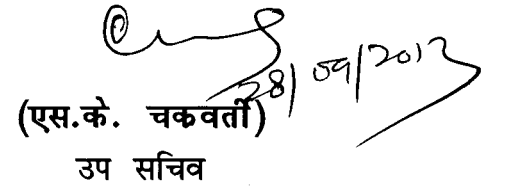 28/09/2012
(एस.के. चकवर्ती)
उप सचिव